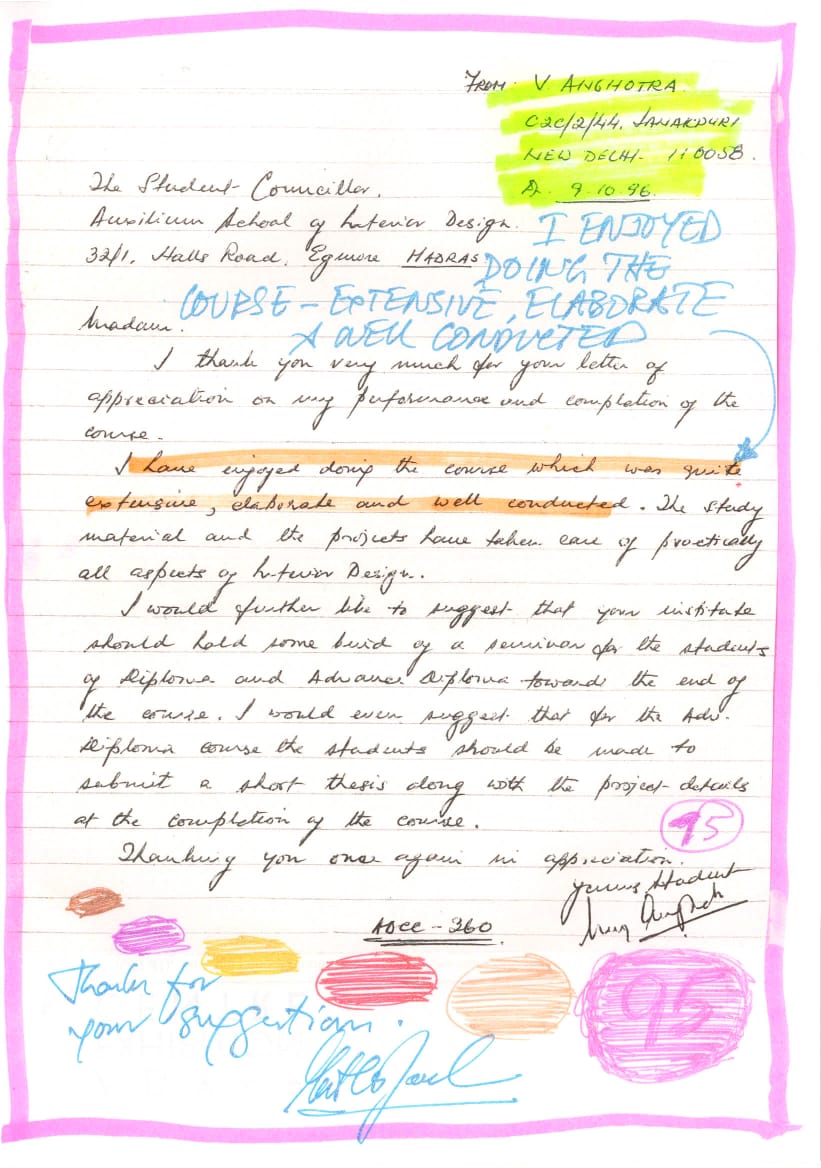 From: V. ANGHOTRA
C2C/2/44, JANAKPURI
NEW DELHI- 110058.
D. 9.10.96.
The Student Councillor,
Auxilium School of Interior Design.
32/1, Halls Road, Egmore MADRAS
I ENJOYED
DOING THE
COURSE – EXTENSIVE, ELABORATE
& WELL CONDUCTED
Madam.
I thank you very much for your letter of
appreciation on my performance and completion of the
course.
I have enjoyed doing the course which was quite
extensive, elaborate and well conducted. The study
material and the projects have taken care of practically
all aspects of Interior Design.
I would further like to suggest that your institute
should hold some kind of a seminar for the students
of Diploma and Advance Diploma towards the end of
the course. I would even suggest that for the Adv.
Diploma course the students should be made to
submit a short thesis along with the project details
at the completion of the course.
95
Thanking you once again in appreciation.
Yours Student
ADCC - 360
95
Thanks for
your suggestion.